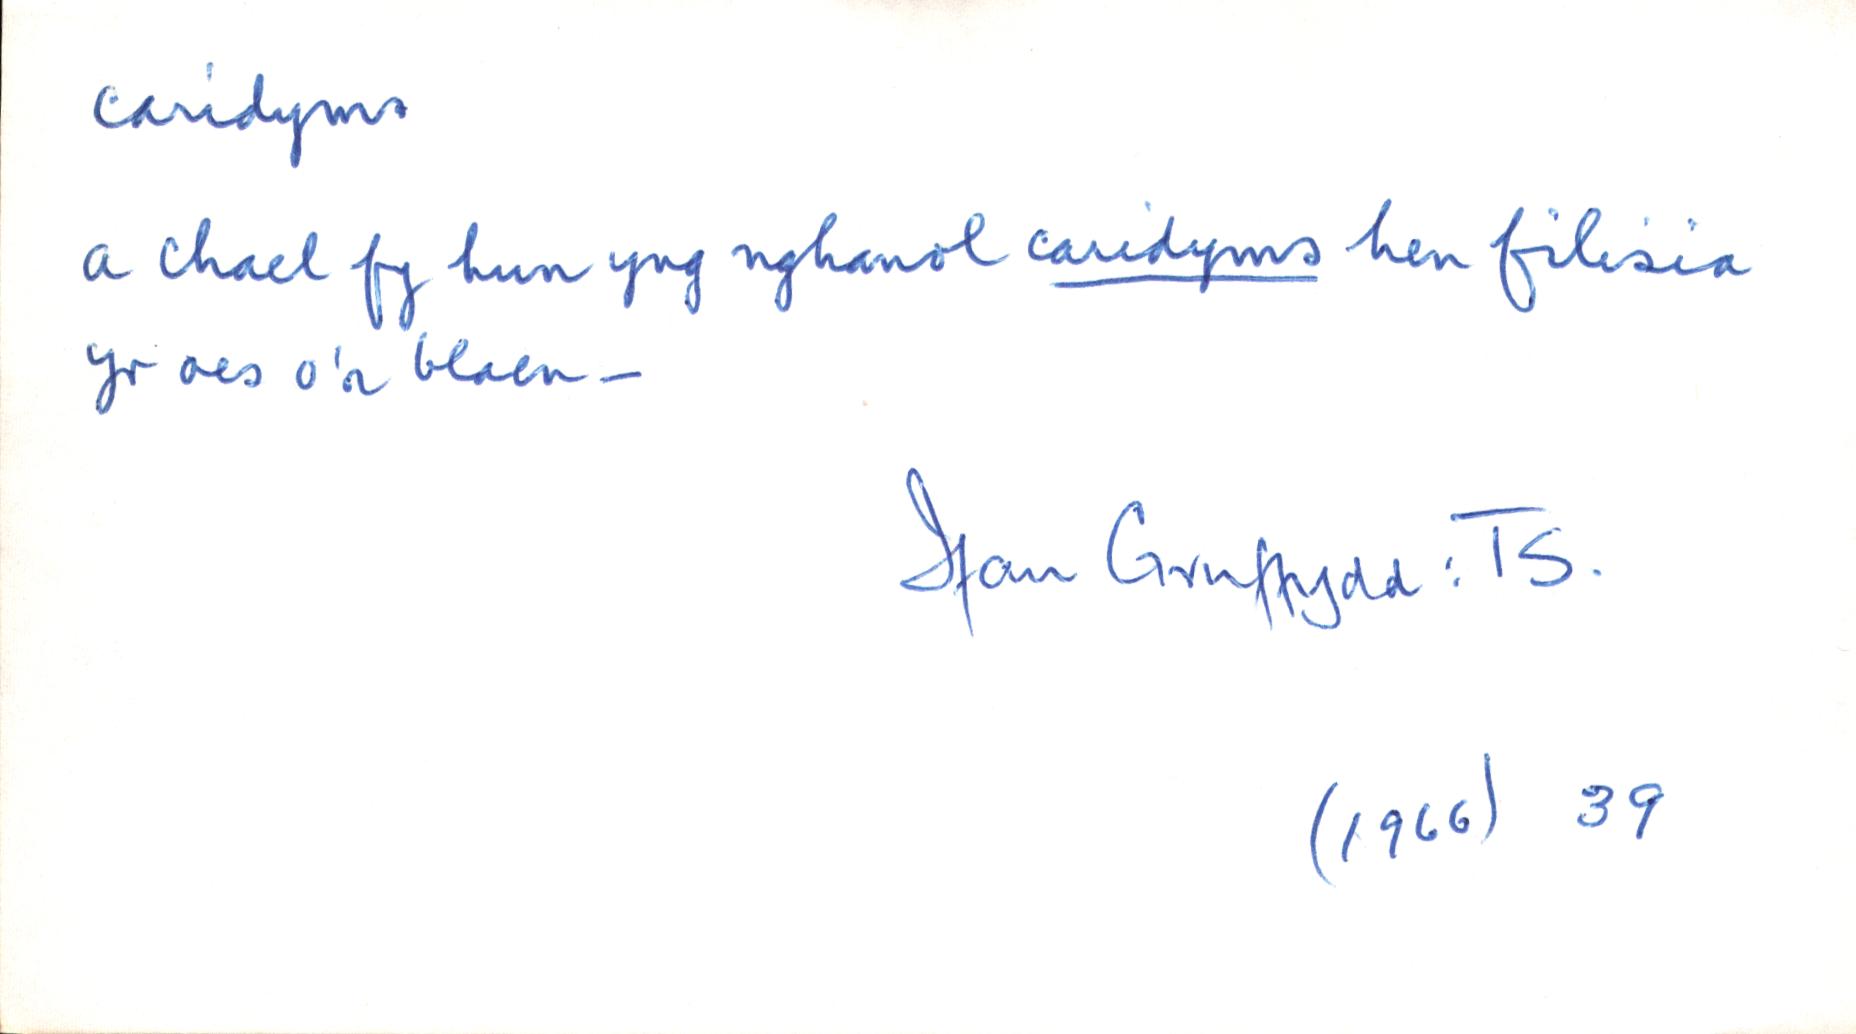 caridyms
a chael fy hun yng nghanol caridyms hen filisia
yr oes o'r blaen –
Ifan Gruffydd : TS.
(1966) 39